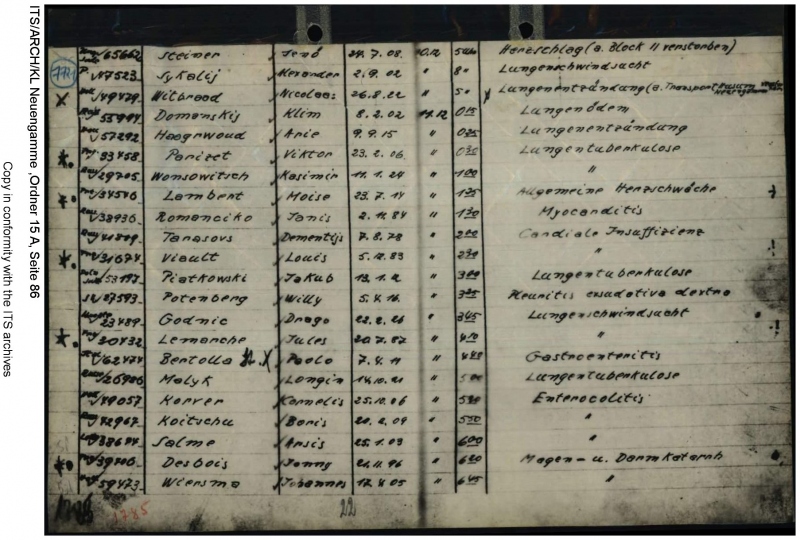 ITS/ARCH/KL Neuengamme ,Ordner 15 A, Seite 86
Copy in conformity with the ITS archives
65662 Steiner Jenö 24. 7. 08. 10.12 Herzschlag (a. Block 11 verstorben)
P. 17523 Sykalij Alexander 2. 9. 02 " Lungenschwindsucht
X 49479 Witbraad Nicolaas 26.8.22 " Lungenentzündung (a. Transport
55944 Domanskij Klim 8. 2. 02 11.12 0 15 Lungenödem
57292 Hoogerwoud Arie 9. 9. 15 " Lungenentzündung
33458 Parizet Viktor 23. 2. 06. " 0 30 Lungentuberkulose
29705 Wonsowitsch Kasimir 11. 1. 24 " 1 00 "
34546 Lambert Moise 23. 7. 14 " Allgemeine Herzschwäche
38936 Romanciko Janis 2. 11. 84 " 1 30 Myocarditis
Tanasovs Dementijs 7. 8. 78 " 2 00 Cardiale Insuffizienz
31674 Viault Louis 5. 12. 83 " "
53197 Piatkowski Jakub " 3 00 Lungentuberkulose
87593 Potenberg Willy 5. 4. 16. " Pleuritis exsudativa dextra
23489 Godnic Drago 22. 2. 26 " 3 45 Lungenschwindsucht
30432 Lemarche Jules 20. 7. 87 " 4 10 "
62474 Bertolla X Paolo 7. 4. 11 " 4 40 Gastroenteritis
Malyk Longin 14.10.21 " 5 00 Lungentuberkulose
49057 Korver Kornelis 25.10.06 " Enterocolitis
42967 Koitschu Boris 20. 2. 09 " 5 50 "
38674 Salme Ansis 25. 1. 03 " 6 00 "
39706 Desbois 21.11. 96 " Magen- u. Darmkatarrh
59473 Wiersma Johannes 17. 4 05 " 6 45 "
1785 22